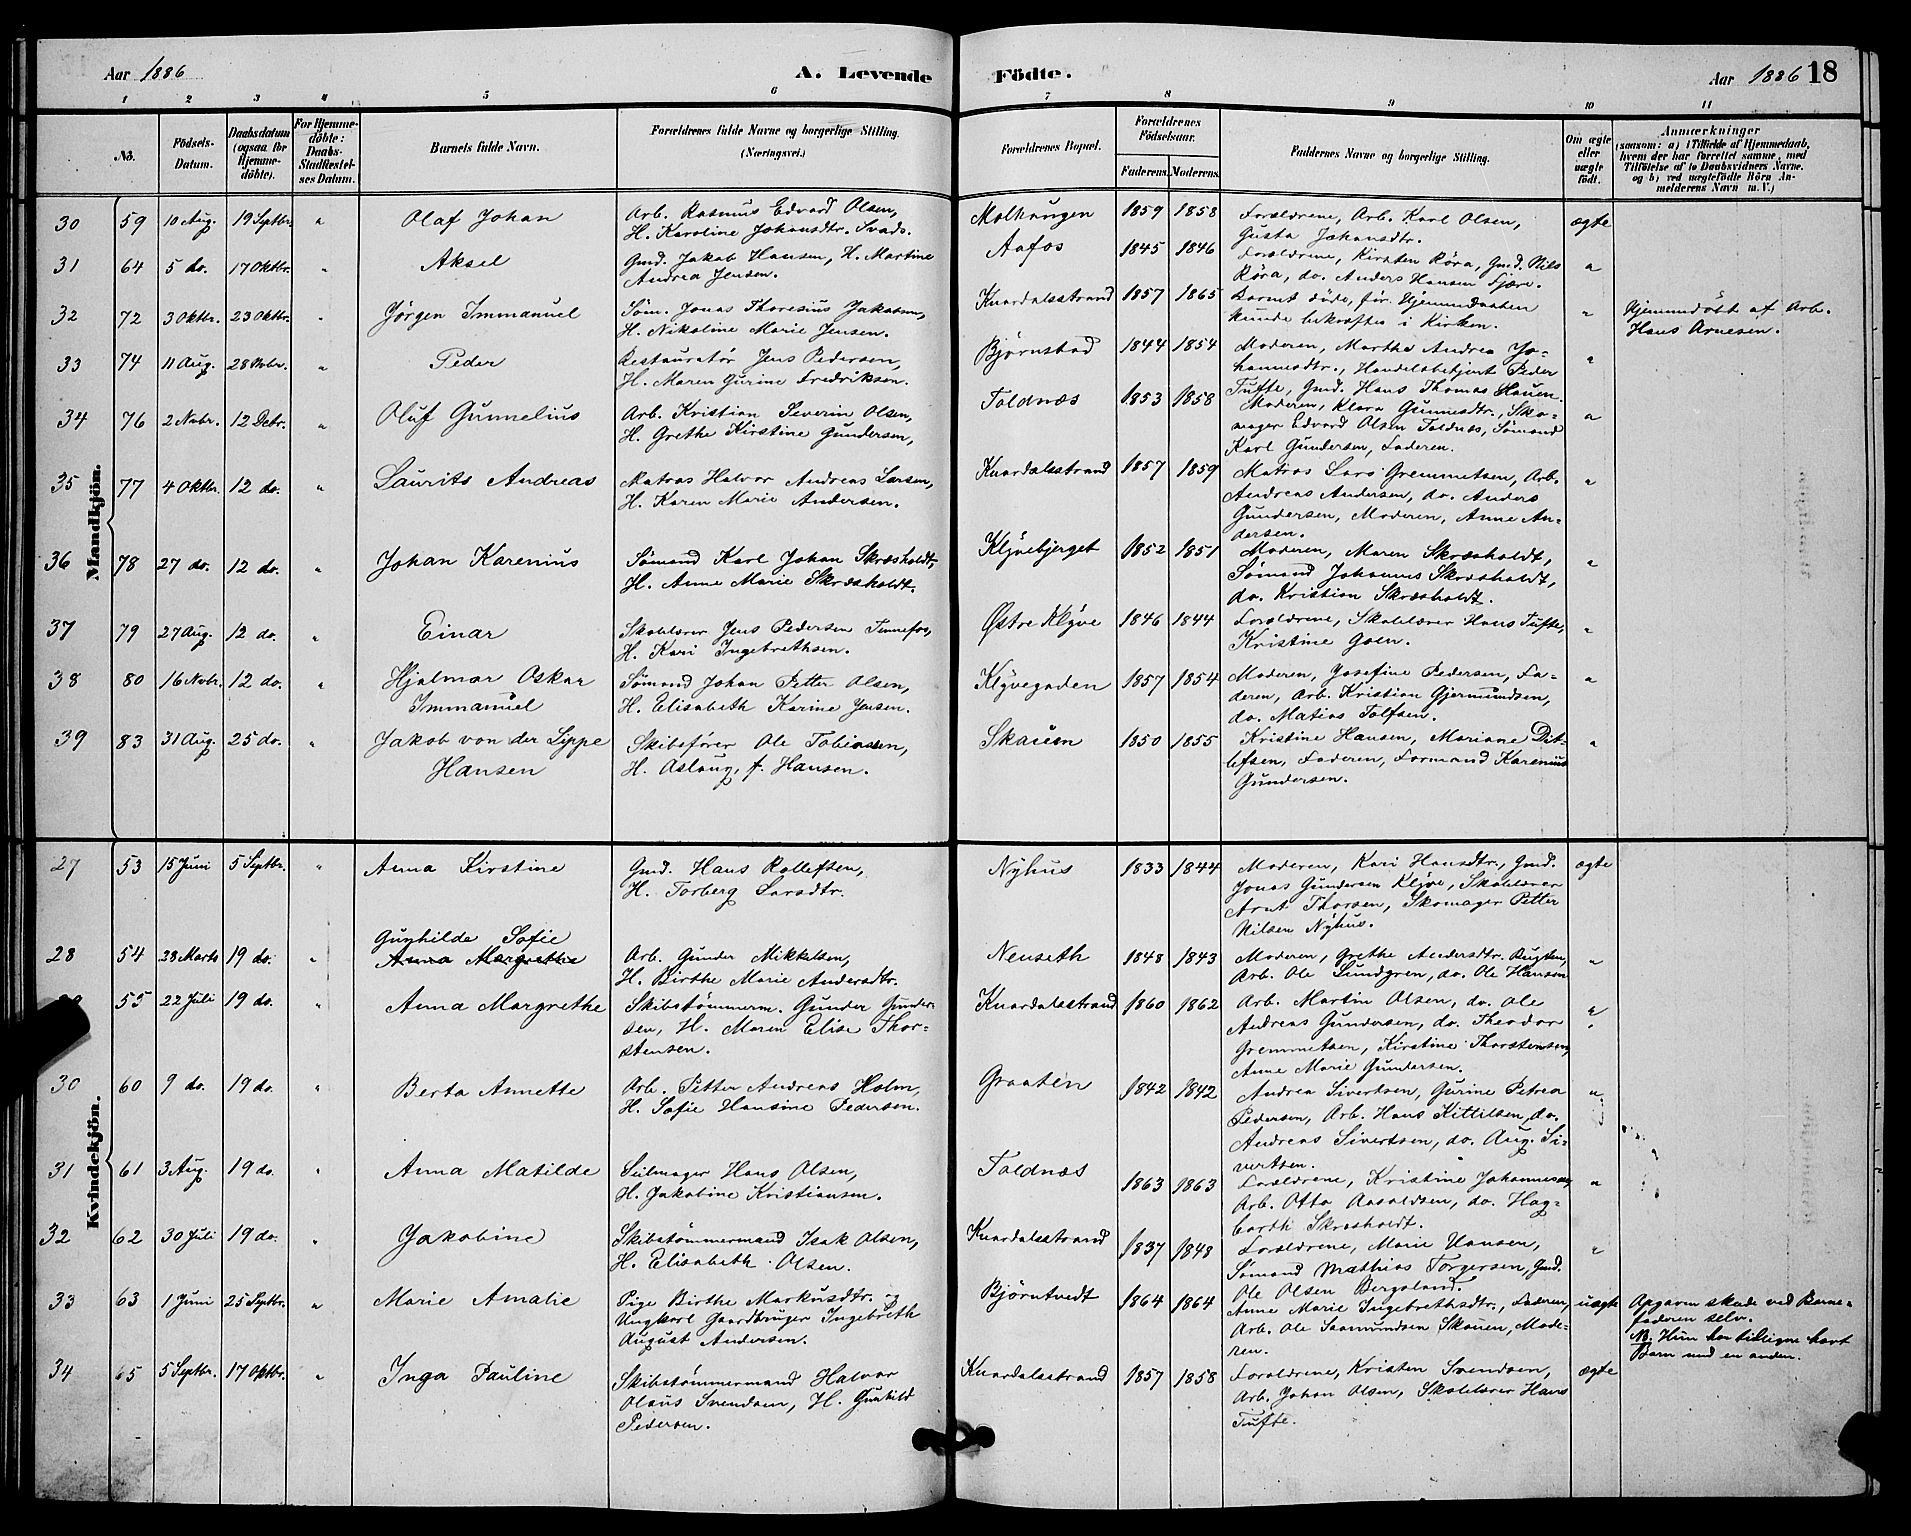 Aar 1886
A. Levende
Födte.
Aar 1886 18
1 2 3 4 5 6 7 8 9 10 11
No.
Födsels-
Datum.
Daabsdatum
(ogsaa for
Hjemme-
döbte).
For Hjemme-
döbte:
Daabs-
Stadfæstel-
ses Datum.
Barnets fulde Navn.
Forældrenes fulde Navne og borgerlige Stilling.
(Næringsvei.)
Forældrenes Bopæl.
Forældrenes
Födselsaar.
Faderens. Moderens.
Faddernes Navne og borgerlige Stilling.
Om ægte
eller
uægte
födt.
Anmærkninger
(saasom: a) i Tilfælde af Hjemmedaab,
hvem der har forrettet samme, med
Tilföielse af to Daabsvidners Navne.
og b) ved uægtefödte Börn An-
melderens Navn m. V.)
Mandkjön.
30 59 10 Aug. 19 Septbr. " Olaf Johan
Arb. Rasmus Edvard Olsen,
H. Karoline Johansdtr. Svads.
1859 1858
Forældrene, Arb. Karl Olsen,
Gusta Johansdtr.
ægte
31 64 5 do. 17 Oktbr. " Aksel
Gmd. Jakob Hansen, H. Martine
Andrea Jensen.
Aafos 1845 1846
Forældrene, Kirsten Röra, Gmd. Nils
Röra, do. Anders Hansen Fjære.
"
32 72 3 Oktbr. 23 Oktbr. " Jørgen Immanuel
Søm. Jonas Thoresius Jakobsen,
H. Nikoline Marie Jensen.
Knardalsstrand 1857 1865
Barnet døde, før Hjemmedaaben
kunde bekræftes i Kirken.
"
Hjemmedøbt af Arb.
Hans Arnesen.
33 74 11 Aug. 28 Nvbr. " Peder
Restauratør Jens Pedersen,
H. Maren Gurine Fredriksen.
Bjørnstad 1844 1854
Moderen, Marthe Andrea Jo-
hannesdtr., Handelsbetjent Peder
Tufte, Gmd. Hans Thomas Hauen.
"
34 76 2 Nvbr. 12 Debr. " Oluf Gunnelius
Arb. Kristian Severin Olsen,
H. Grethe Kirstine Gundersen,
Toldnæs 1853 1858
Moderen, Klara Gunnesdtr., Sko-
mager Edvard Olsen Toldnæs, Sømand
Karl Gundersen, Faderen.
"
35 77 4 Oktbr. 12 do. " Laurits Andreas
Matros Halvor Andreas Larsen,
H. Karen Marie Andersen.
Knardalsstrand 1857 1859
Matros Lars Gremmetsen, Arb.
Andreas Andersen, do. Anders
Gundersen, Moderen, Anne An-
dersen.
"
36 78 27 do. 12 do. " Johan Karenius
Sømand Karl Johan Skræsholdt,
H. Anne Marie Skræsholdt.
Klyvebjerget 1852 1851
Moderen, Maren Skræsholdt,
Sømand Johannes Skræsholdt,
do. Kristian Skræsholdt.
"
37 79 27 Aug. 12 do. " Einar
Skolelærer Jens Pedersen Tinnefos,
H. Kari Ingebrethsen.
Østre Klyve 1846 1844
Forældrene, Skolelærer Hans Tufte,
Kristine Goen.
"
38 80 16 Nvbr. 12 do. " Hjalmar Oskar
Immanuel
Sømand Johan Petter Olsen,
H. Elisabeth Karine Jensen.
Klyvegaden 1857 1854
Moderen, Josefine Pedersen, Fa-
deren, Arb. Kristian Gjermundsen,
do. Matias Tolfsen.
"
39 83 31 Aug. 25 do. " Jakob von der Lippe
Hansen
Skibsfører Ole Tobiassen,
H. Aslaug, f. Hansen.
Skauen 1850 1855
Kristine Hansen, Mariane Dit-
lefsen, Faderen, Formand Karenius
Gundersen.
"
Kvindekjön.
27 53 15 Juni 5 Septbr. " Anna Kirstine
Gmd. Hans Rollefsen,
H. Torberg Larsdtr.
Nyhus 1833 1844
Moderen, Kari Hansdtr., Gmd.
Jonas Gundersen Klyve, Skolelærer
Arnt Thorsen, Skomager Petter
Nilsen Nyhus.
ægte
28 54 28 Marts 19 do. " Gunhilde Sofie
Anna Margrethe
Arb. Gunder Mikkelsen,
H. Birthe Marie Andersdtr.
Nenseth 1848 1843
Moderen, Grethe Andersdtr. Bugten,
Arb. Ole Lundgren, do. Ole Hansen
"
55 22 Juli 19 do. Anna Margrethe
Skibstømmerm. Gunder Gunder-
sen, H. Maren Elise Thor-
stensen.
Knardalsstrand 1860 1862
Arb. Martin Olsen, do. Ole
Andreas Gundersen, do. Theodor
Gremmetsen, Kirstine Thorstensen,
Anne Marie Gundersen.
"
30 60 9 do. 19 do. " Berta Annette
Arb. Petter Andreas Holm,
H. Sofie Hansine Pedersen.
Graaten 1842 1842
Andrea Sivertsen, Gurine Petrea
Pedersen, Arb. Hans Kittilsen, do.
Andreas Sivertsen, do. Aug. Si-
vertsen.
"
31 61 3 Aug. 19 do. " Anna Matilde
Seilmager Hans Olsen,
H. Jakobine Kristiansen.
Toldnæs 1863 1863
Forældrene, Kristine Johannesen,
Arb. Otto Aasoldsen, do. Hag-
barth Skræsholdt.
"
32 62 30 Juli 19 do. " Jakobine
Skibstømmermand Isak Olsen,
H. Elisabeth Olsen.
Knardalsstrand 1837 1848
Forældrene, Marie Hansen,
Sømand Mathias Torgersen, Gmd.
Ole Olsen Bergsland.
"
33 63 1 Juni 25 Septbr. " Marie Amalie
Pige Birthe Markusdtr. og
Ungkarl Gaardbruger Ingebreth
August Andersen.
Bjørntvedt 1864 1864
Anne Marie Ingebrethsdtr., Faderen,
Arb. Ole Saamundsen Skauen, Mode-
ren.
uægte
Opgaven skede ved Barne-
faderen selv.
NB. Hun har tidligere havt
Barn med en anden.
34 65 5 Septbr. 17 Oktbr. " Inga Pauline
Skibstømmermand Halvor
Olaus Svendsen, H. Gunhild
Pedersen.
Knardalsstrand 1857 1858
Forældrene, Kristen Svendsen,
Arb. Johan Olsen, Skolelærer Hans
Tufte.
ægte